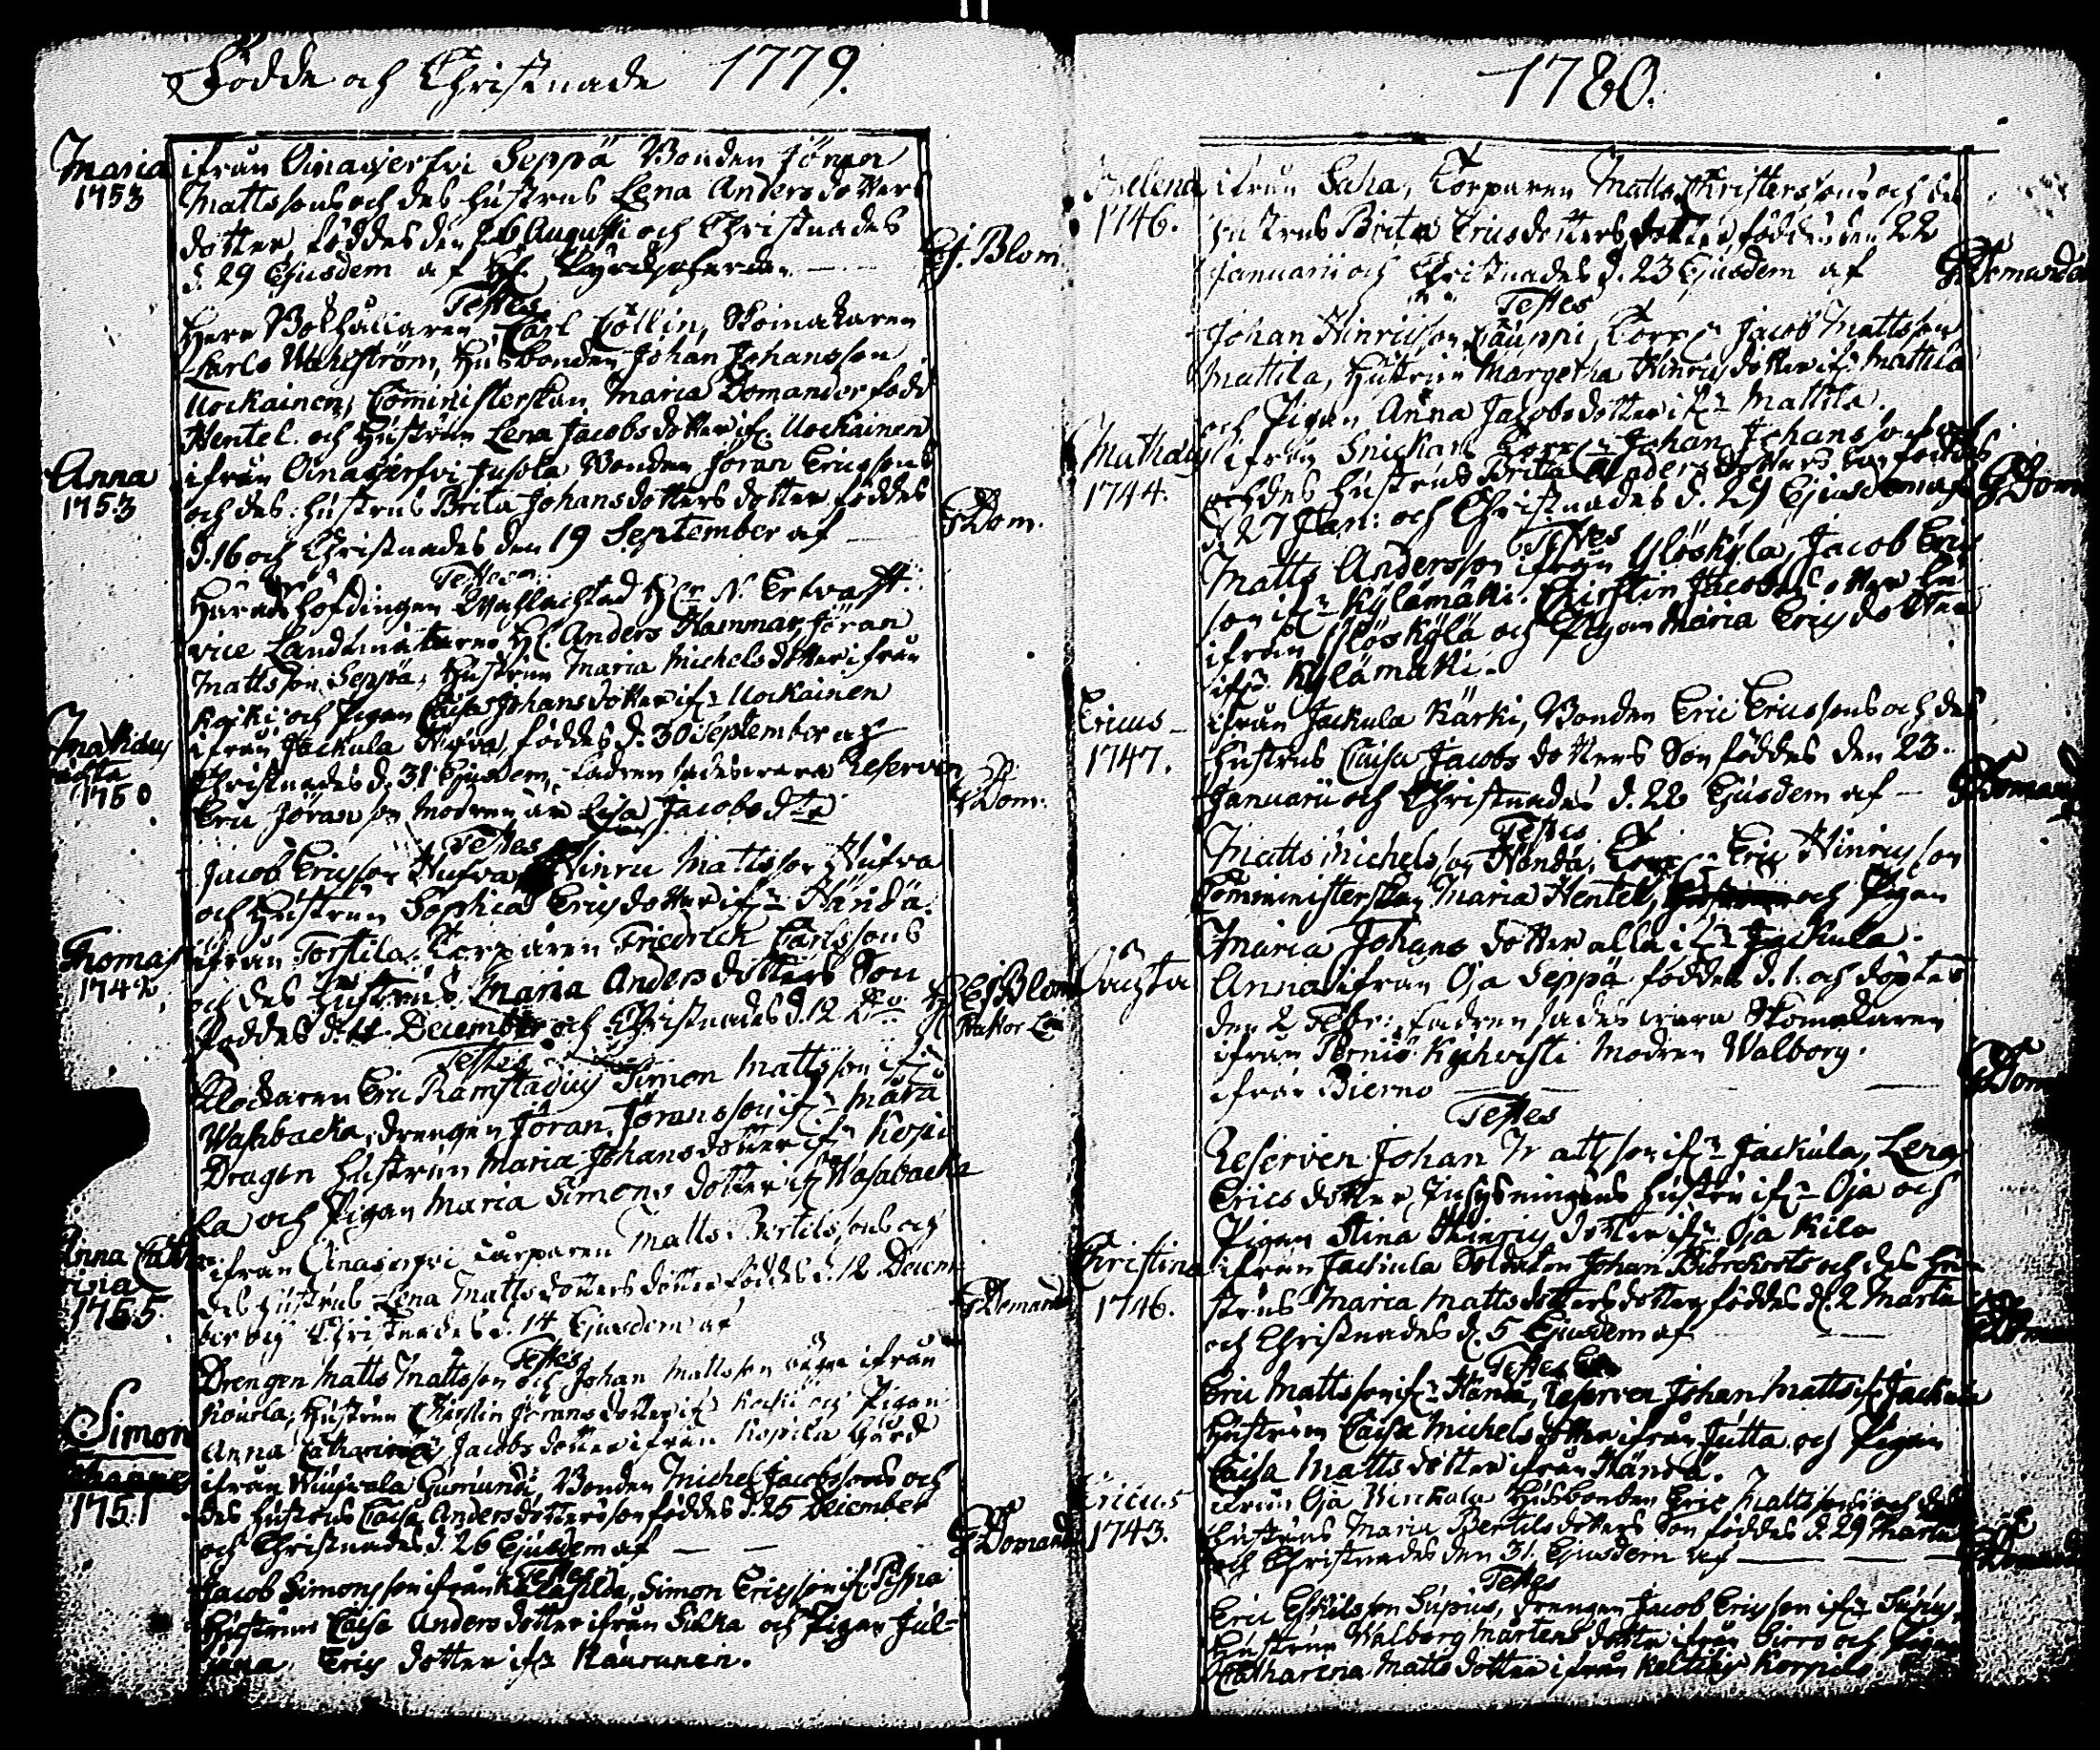 Födde och Christnade 1779.
Maria
1753
ifrån Oinasjerfvi Seppä Bonden Jöran
Mattssons och des hustrus Lena Andersdotters
dotter föddes den 26 Augusti och Christnades
d. 29 Ejusdem af H:
Ef. Blom.
Testes
Herr Bokhållaren Carl Collin, Skomakaren
Carls Wahlström, Husbonden Johan Johansson
Uockainen, Comministerskan Maria Domander född
Hentel. och Hustrun Lena Jacobsdotter if. Uockainen
Anna
1753
ifrån Oinasjerfvi Jusola Bonden Jöran Ericssons
och des hustrus Brita Johansdotters dotter föddes
d. 16 och Christnades den 19 September af
G Dom.
Testes
Häradshöfdingen
vice Landtmätaren H. Anders Hammar, Jöran
Mattsson Seppä, Hustrun Maria Michelsdotter ifrån
och Pigan Caisa Johansdotter if:n Uockainen
Mathias
oächta
1750
ifrån Jackula föddes d. 30 September och
Christnades d. 31 Ejusdem, fadren sades vara Reserven
Eric Jöransson modren är Lisa Jacobsd:tr
G Dom:
Testes
Jacob Ericsson Hinric Mattsson
och Hustrun Sophia Ericsdotter if:n Händä.
Thomas
1742
ifrån Torstila Torparen Friedrich Carlssons
och des Hustrus Maria Andersdotters Son
föddes d. 11 December och Christnades d. 12 D:o
H. Ef Blom
Testes
Klockaren Eric Ramstadius Simon Mattsson if:n
Wasabacka, drengen Jöran Jöransson if:n
Dragon Hustrun Maria Johansdotter if:n
la och Pigan Maria Simonsdotter if: Wasabacka
Anna Catha
rina
1755
ifrån Oinasjerfvi Torparen Matts Bertilssons och
des hustrus Lena Mattsdotters dotter föddes d. 12 Decem
ber och Christnades d. 14 Ejusdem af
G Domand
Testes
Drengen Matts Mattsson och Johan Mattsson ifrån
Hustrun Christin Jöransdotter if: och Pigan
Anna Catharina Jacobsdotter ifrån Kopila Gård
Simon
1751
ifrån Bonden Michel Jacobssons och
des hustrus Caisa Andersdotters son föddes d. 25 December
och Christnades d. 26 Ejusdem af
G Domand
Testes
Jacob Simonsson ifrån Simon Ericsson if:
Hustrun Caisa Andersdotter ifrån Silka och Pigan Jul-
iana Ericsdotter if:n Kaurunen.
1780.
Helena
1746.
ifrån Saha, Torparen Matts Christerssons och des
hustrus Brita Ericsdotters dotter, föddes den 22
Januarii och Christnades d. 23 Ejusdem af
G Domander
Testes
Johan Hinricsson Torp:n Jacob Mattsson
Mattila, Hustrun Margetha Hinricsdotter if:n Mattila
och Pigan Anna Jacobsdotter if:n Mattila.
Mathias
1744.
ifrån Snickars Torp:n Johan Johanssons
och des hustrus Brita Andersdotters Son föddes
d. 27 Jan: och Christnades d. 29 Ejusdem af
G Dom
Testes
Matts Andersson ifrån Ylöskylä, Jacob Erics
son if:n Kylämäki. Christin Jacobsdotter
ifrån Ylöskylä och Pigan Maria Ericsdotter
if:n Kylämäki.
Ericus
1747.
ifrån Jackula Kärki, Bonden Eric Ericssons och des
hustrus Caisa Jacobsdotters Son föddes den 23.
Januarii och Christnades d. 28 Ejusdem af
G Doman
Testes
Matts Michelsson Händä, Torp:n Eric Hinricsson
Comministerskan Maria Hentel, och Pigan
Maria Johansdotter alla if:n Jackula.
Oächta
Anna ifrån Oja Seppä föddes d. 1. och döptes
den 2 Febr: fadren sades wara Skomakaren
ifrån Modren Walborg
ifrån Bierno
G Dom
Testes
Reserven Johan Mattsson if:n Jackula, Lena
Ericsdotter, hustru if:n Oja och
Pigan Stina Hinricsdotter if:n Oja Kilo
Christina
1746.
ifrån Jackula Soldaten Johan Biörckrots och des hu-
strus Maria Mattsdotters dotter föddes d. 2 Martii
och Christnades d. 5 Ejusdem af
Testes
Eric Mattsson if:n Händä, Reserven Johan Matts: if: Jackula
Hustrun Caisa Michelsdotter ifrån Jutta och Pigan
Caisa Mattsdotter ifrån Händä.
Ericus
1743.
ifrån Oja Husbonden Eric Mattssons och des
Hustrus Maria Bertilsdotters Son föddes d. 29 Martii
och Christnades den 31. Ejusdem af
Testes
Eric Eskilsson Supius, drengen Jacob Ericsson if:n Supius,
Hustrun Walborg Mårtensdotter ifrån och Pigan
Catharina Mattsdotter ifrån